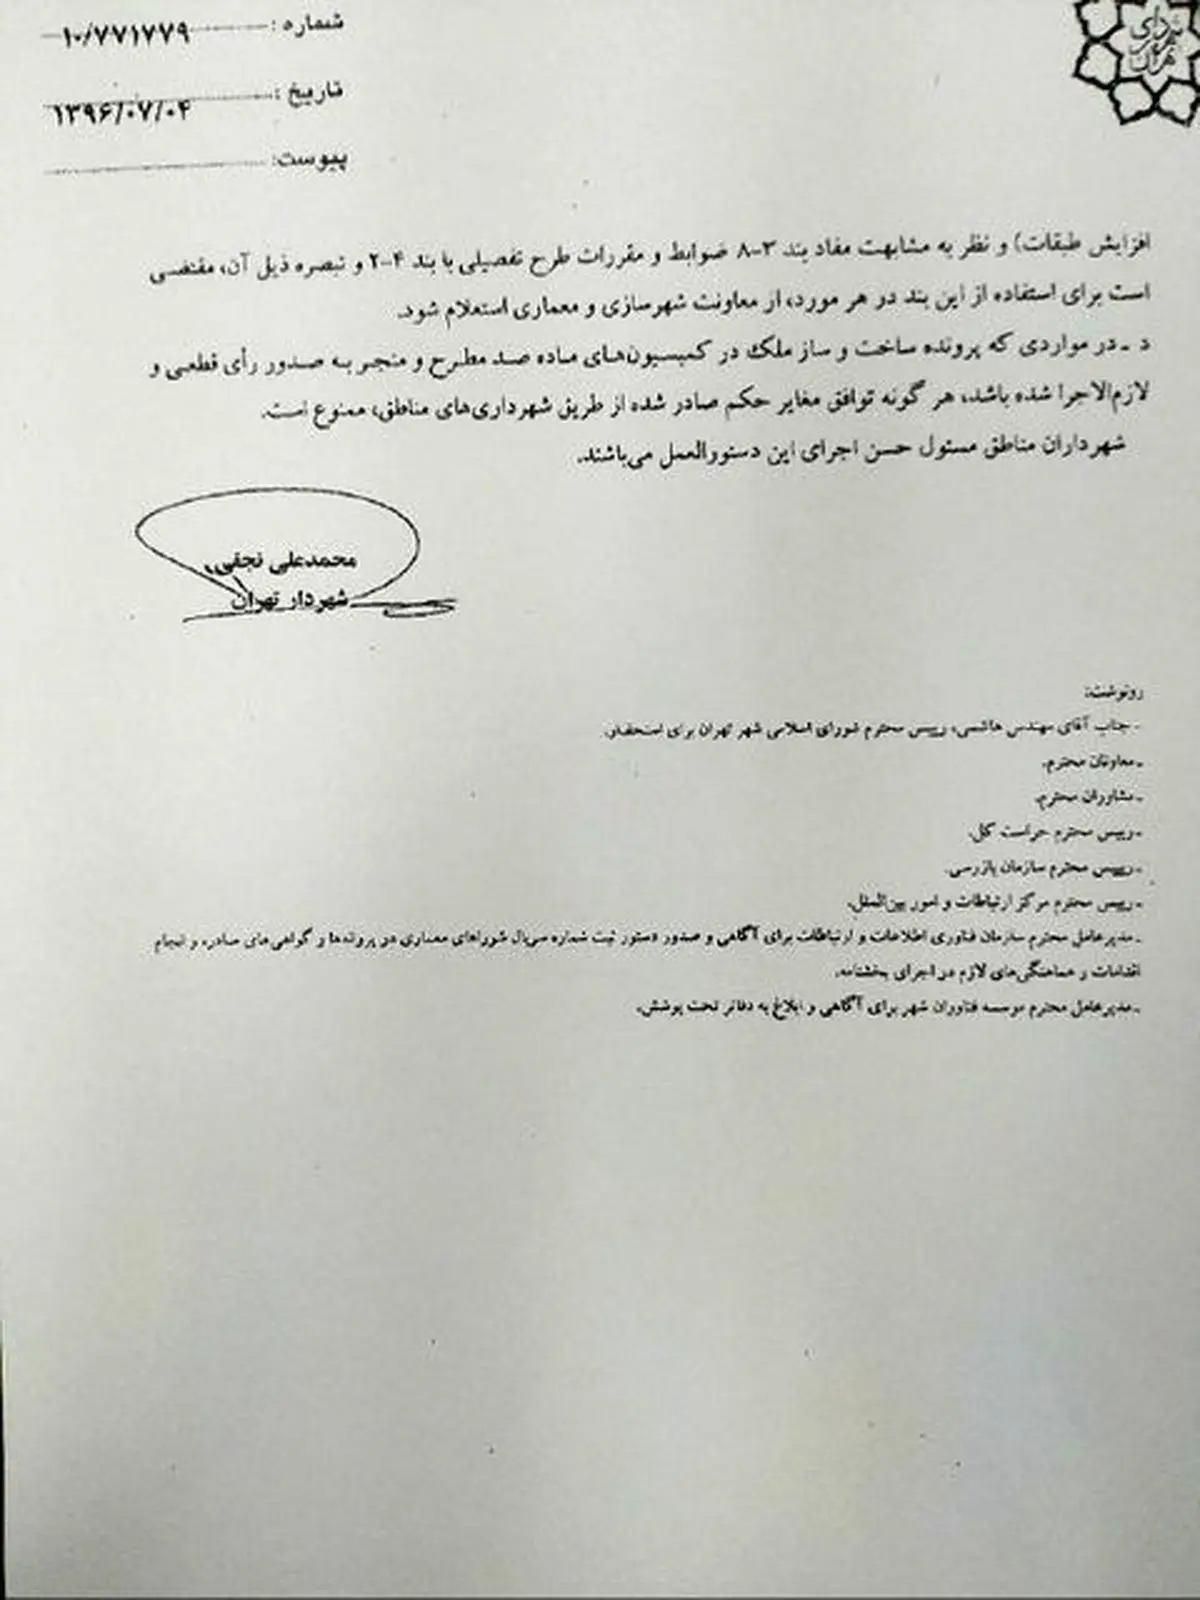 شهرداری تهران
شماره : ۱۰/۷۷۱۷۷۹
تاریخ : ۱۳۹۶/۰۷/۰۴
پیوست:
افزایش طبقات) و نظر به مشابهت مفاد بند ۳-۸ ضوابط و مقررات طرح تفصیلی با بند ۴-۲ و تبصره ذیل آن، مقتضی
است برای استفاده از این بند در هر مورد، از معاونت شهرسازی و معماری استعلام شود.
د ـ در مواردی که پرونده ساخت و ساز ملک در کمیسیون‌های ماده صد مطرح و منجر به صدور رأی قطعی و
لازم‌الاجرا شده باشد، هر گونه توافق مغایر حکم صادر شده از طریق شهرداری‌های مناطق، ممنوع است.
شهرداران مناطق مسئول حسن اجرای این دستورالعمل می‌باشند.
محمدعلی نجفی
شهردار تهران
رونوشت:
ـ جناب آقای مهندس هاشمی، رییس محترم شورای اسلامی شهر تهران برای استحضار.
ـ معاونان محترم.
ـ مشاوران محترم.
ـ رییس محترم حراست کل.
ـ رییس محترم سازمان بازرسی.
ـ رییس محترم مرکز ارتباطات و امور بین‌الملل.
ـ مدیرعامل محترم سازمان فناوری اطلاعات و ارتباطات برای آگاهی و صدور دستور ثبت شماره سریال شوراهای معماری در پرونده‌ها و گواهی‌های صادره و انجام
اقدامات و هماهنگی‌های لازم در اجرای بخشنامه.
ـ مدیرعامل محترم موسسه فناوران شهر برای آگاهی و ابلاغ به دفاتر تحت پوشش.